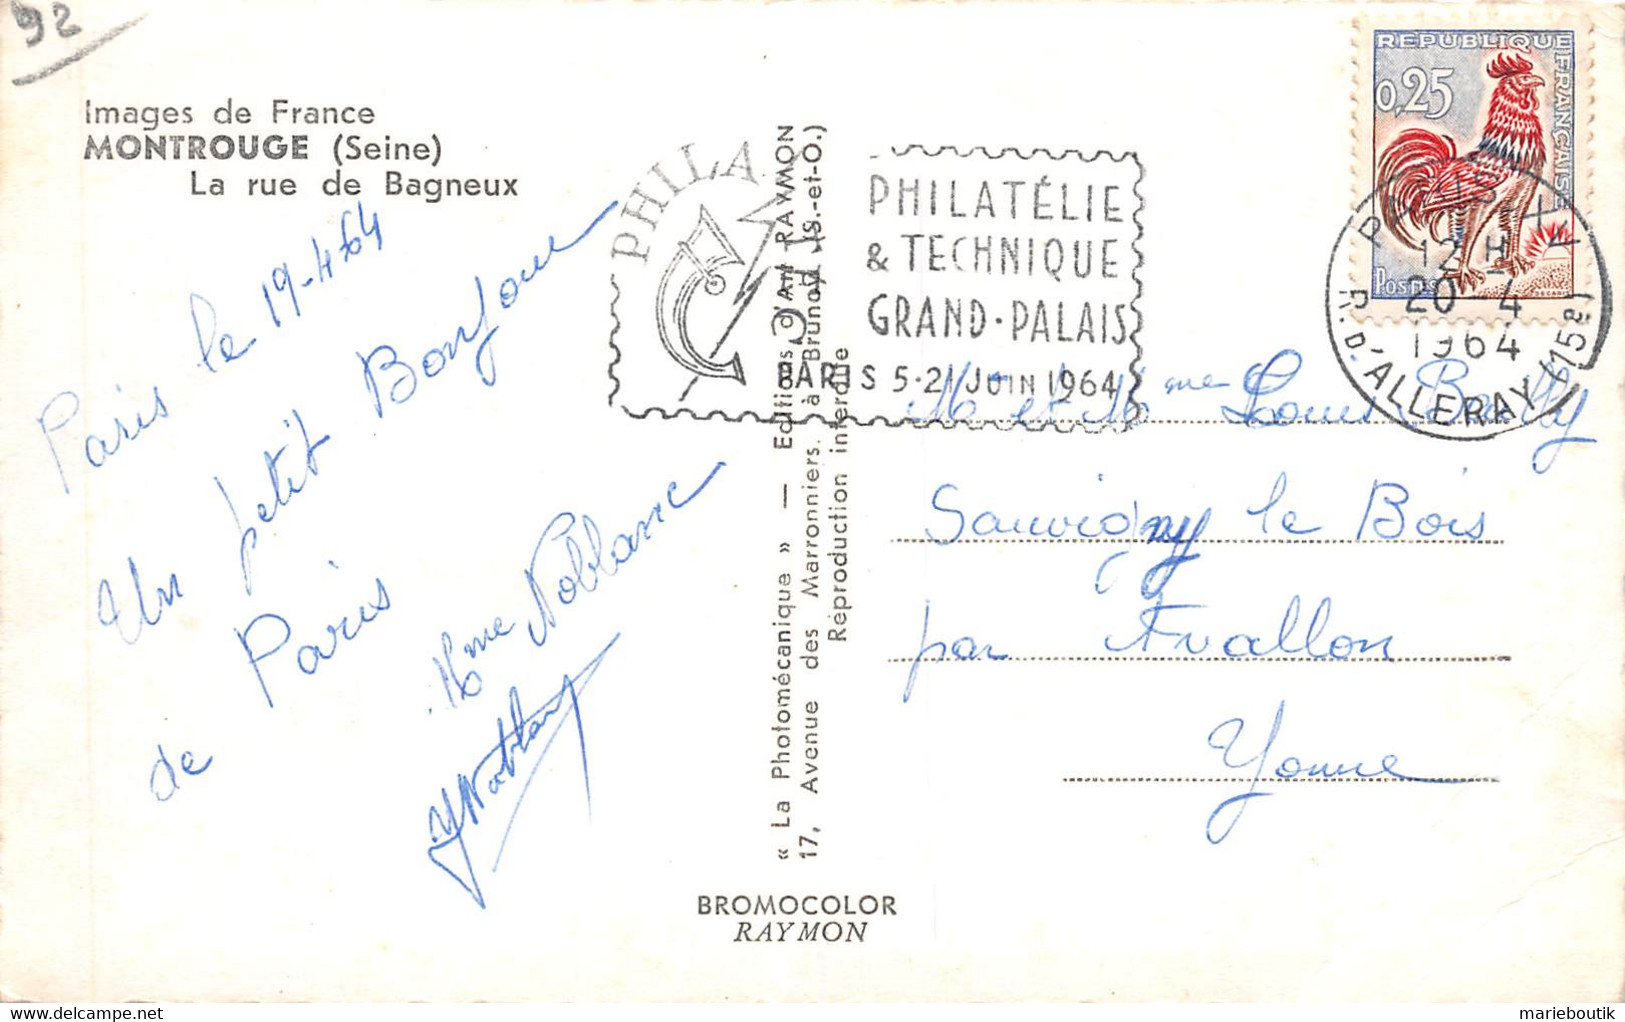 92
Images de France
MONTROUGE (Seine)
La rue de Bagneux
Paris le 19-4-64
Un petit Bonjour
de Paris
Mme Noblanc
« La Photomécanique » — Editions d'Art RAYMON
17, Avenue des Marronniers. à Brunoy (S.-et-O.)
Réproduction interdite
BROMOCOLOR
RAYMON
PHILATEC
PHILATÉLIE
& TECHNIQUE
GRAND-PALAIS
PARIS 5-21 JUIN 1964
REPUBLIQUE FRANÇAISE
0,25
Postes
DECARIS
PARIS XV
12 H
20-4
1964
R. D'ALLERAY (15e)
M et Mme Louis Bailly
Sauvigny le Bois
par Avallon
Yonne
marieboutik